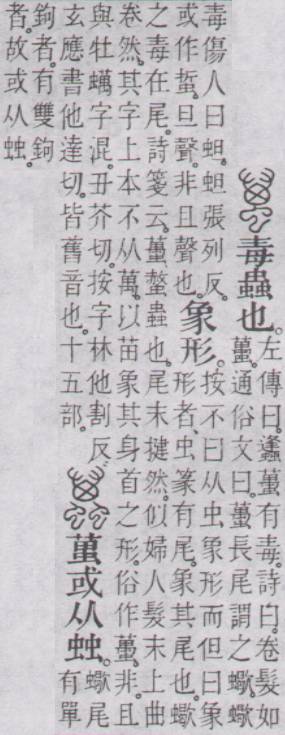 毒蟲也。左傳曰。蠭蠆有毒。詩曰。卷髮如
蠆。通俗文曰。蠆長尾謂之蠍。蠍
毒傷人曰蛆。蛆張列反。
或作蜇。旦聲。非且聲也。
象形。按不曰从虫象形而但曰象
形者。虫篆有尾。象其尾也。蠍
之毒在尾。詩箋云。蠆螫蟲也。尾末揵然。似婦人髮末上曲
卷然。其字上本不从萬。以苗象其身首之形。俗作蠆。非。且
與牡蠣字混。丑芥切。按字林他割反
玄應書他達切。皆舊音也。十五部。
蠆或从䖵。蠍尾
有單
鉤者。有雙鉤
者。故或从䖵。